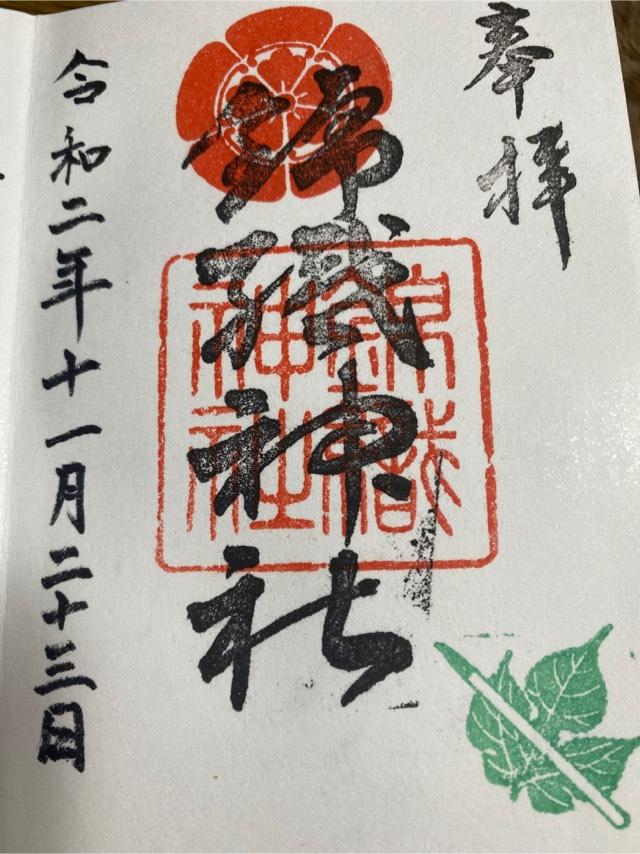 奉拝
錦織神社
錦織
神社
令和二年十一月二十三日